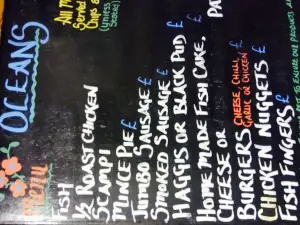 OCEANS
MENU
All M
Served
Chips &
(unless
Stated)
FISH
1/2 ROAST CHICKEN
SCAMPI
MINCE PIE £
JUMBO SAUSAGE £
SMOKED SAUSAGE £
HAGGIS OR BLACK PUD £
HOME MADE FISH CAKE. £
CHEESE OR
BURGERS CHEESE, CHILLI, £
GARLIC OR CHICKEN
CHICKEN NUGGETS £
FISH FINGERS £
PA
TO ENSURE OUR PRODUCTS A